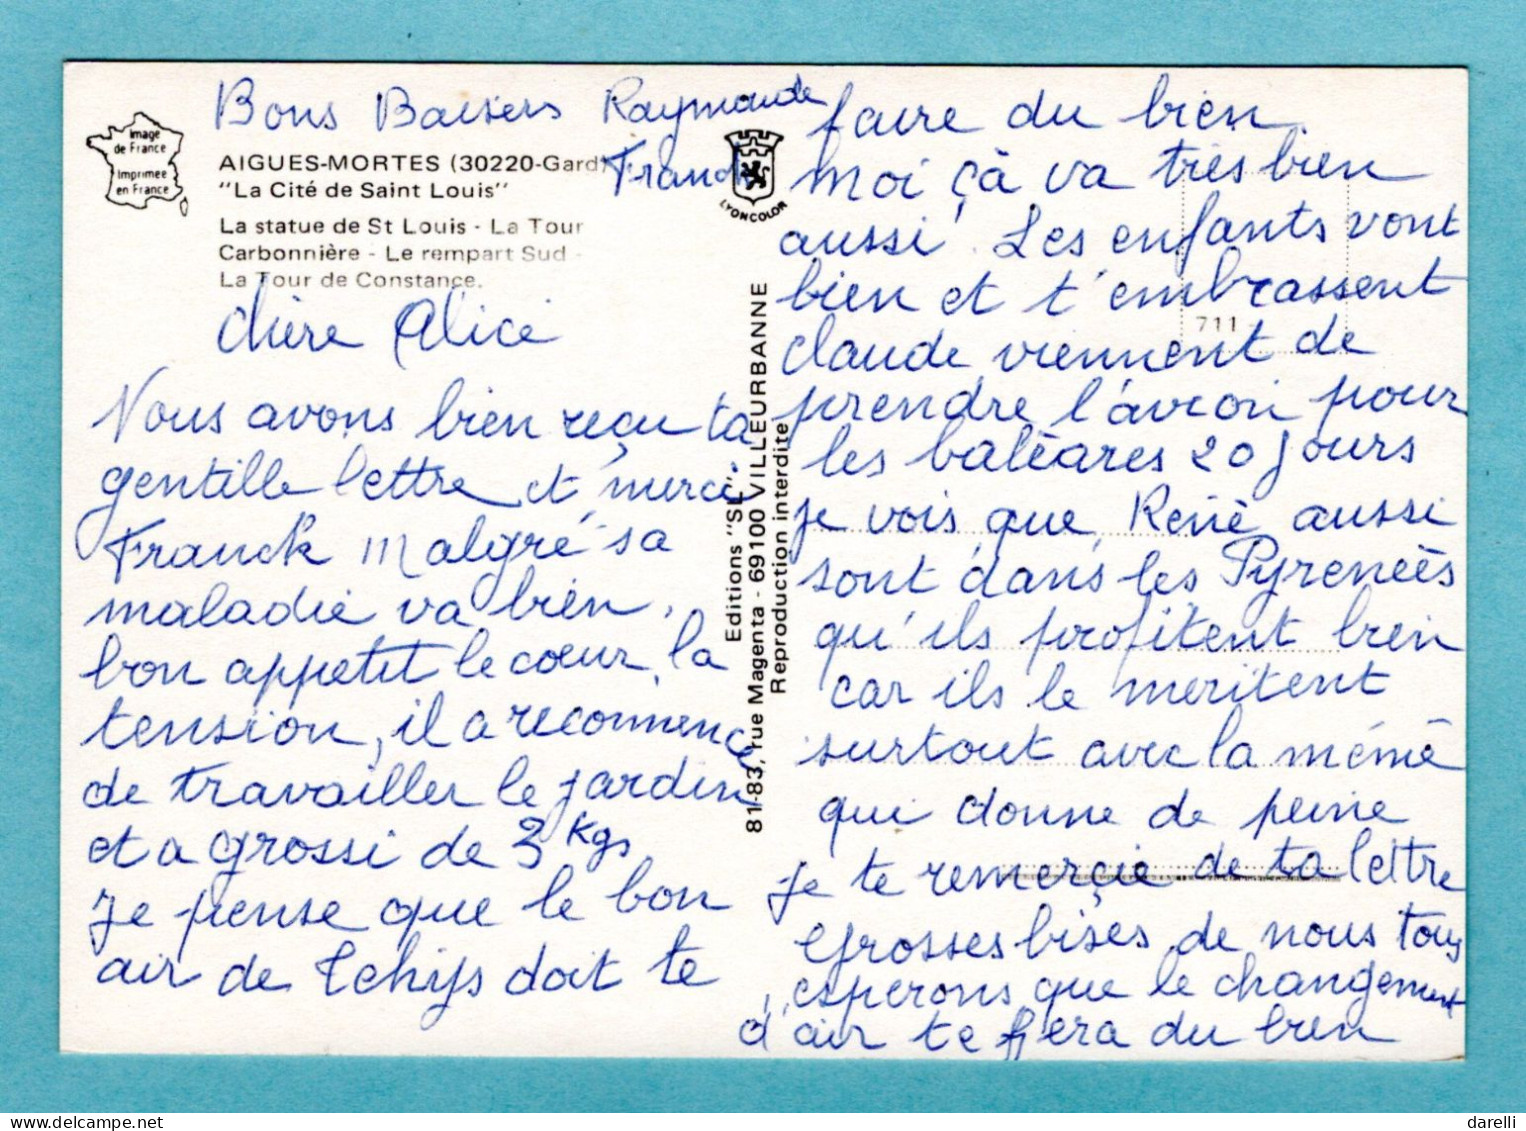 Bons Baisers Raymonde
Franck
Image
de France
Imprimee
en France
AIGUES-MORTES (30220-Gard)
"La Cité de Saint Louis"
La statue de St Louis - La Tour
Carbonnière - Le rempart Sud -
La Tour de Constance.
LYONCOLOR
chère Alice
Nous avons bien reçu ta
gentille lettre et merci
Franck malgré sa
maladie va bien,
bon appetit le cœur, la
tension, il a recommencé
de travailler le jardin
et a grossi de 3 kgs
je pense que le bon
air de doit te
Editions "SL"
81-83, rue Magenta - 69100 VILLEURBANNE
Reproduction interdite
faire du bien.
moi çà va très bien
aussi. Les enfants vont
bien et t'embrassent
711
claude viennent de
prendre l'avion pour
les baléares 20 jours
je vois que René aussi
sont dans les Pyreneés
qu'ils profitent bien
car ils le meritent
surtout avec la mémé
qui donne de peine
je te remerçie de ta lettre
Grosses bises de nous tous
esperons que le changement
d'air te fera du bien
darelli